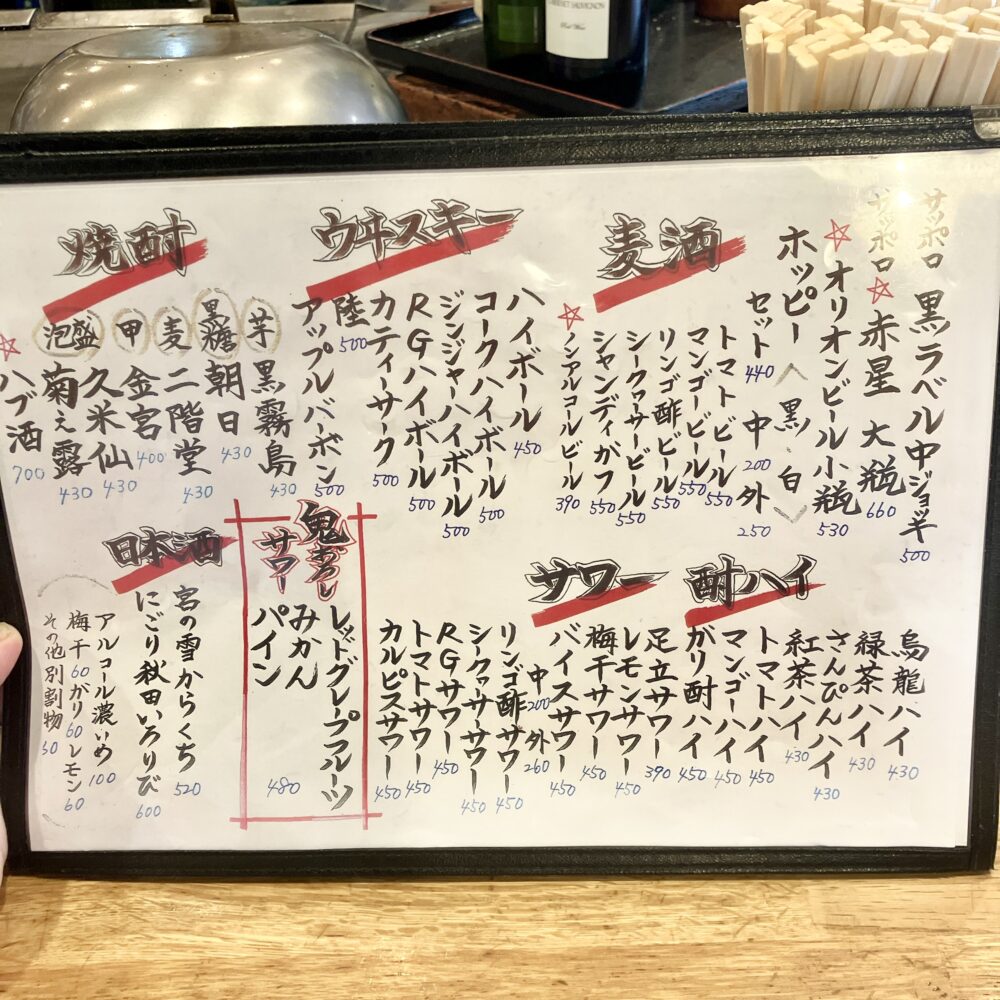 麦酒
サッポロ 黒ラベル中ジョッキ 500
サッポロ☆赤星 大瓶 660
☆オリオンビール小瓶 530
ホッピー〈黒・白〉
セット 440 中 200 外 250
トマトビール 550
マンゴービール 550
リンゴ酢ビール 550
シークヮーサービール 550
シャンディガフ 550
☆ノンアルコールビール 390
ウヰスキー
ハイボール 450
コークハイボール 500
ジンジャーハイボール 500
RGハイボール 500
カティーサーク 500
陸 500
アップルバーボン 500
焼酎
芋 黒霧島 430
黒糖 朝日 430
麦 二階堂 430
甲 金宮 400
久米仙 430
泡盛 菊之露 430
☆ハブ酒 700
酎ハイ
烏龍ハイ 430
緑茶ハイ 430
さんぴんハイ 430
紅茶ハイ 430
トマトハイ 450
マンゴーハイ 450
ガリ酎ハイ 450
サワー
足立サワー 390
レモンサワー 450
梅干サワー 450
バイスサワー 450
中 200 外 260
リンゴ酢サワー 450
シークヮサーサワー 450
RGサワー 450
トマトサワー 450
カルピスサワー 450
鬼おろし
サワー
レッドグレープフルーツ
みかん
パイン
480
日本酒
宮の雪からくち 520
にごり秋田いろりび 600
アルコール濃いめ 100
梅干60ガリ60レモン60
その他別割物 50
CABERNET SAUVIGNON
Red Wine